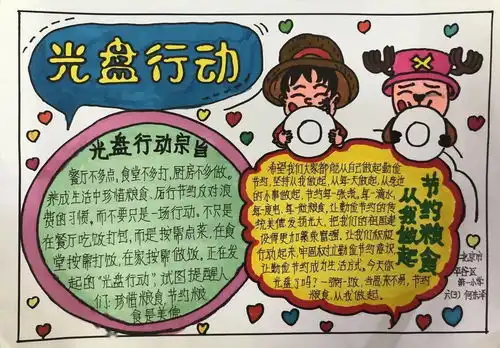 光盘行动
光盘行动宗旨
餐厅不多点,食堂不多打,厨房不多做。
养成生活中珍惜粮食、厉行节约反对浪
费的习惯,而不要只是一场行动。不只是
在餐厅吃饭打包,而是按需点菜,在食
堂按需打饭,在家按需做饭。正在发
起的“光盘行动”,试图提醒人
们:珍惜粮食,节约粮
食是美德
希望我们大家都能从自己做起勤俭
节约,坚持从我做起,从每天做起,从身边
的小事做起,每一张纸,每一滴水,
每一度电,每一粒粮食,让勤俭节约的传
统美德,发扬光大,把我们的祖国建
设得更加繁荣富强,让我们积极
行动起来,牢固树立勤俭节约意识,
让勤俭节约成为生活方式。今天你
光盘了吗?一粥一饭,当思来不易,节约
粮食,从我做起。
节约粮食
从我做起
北京市
平谷区
第一小学
六(3)何东泽